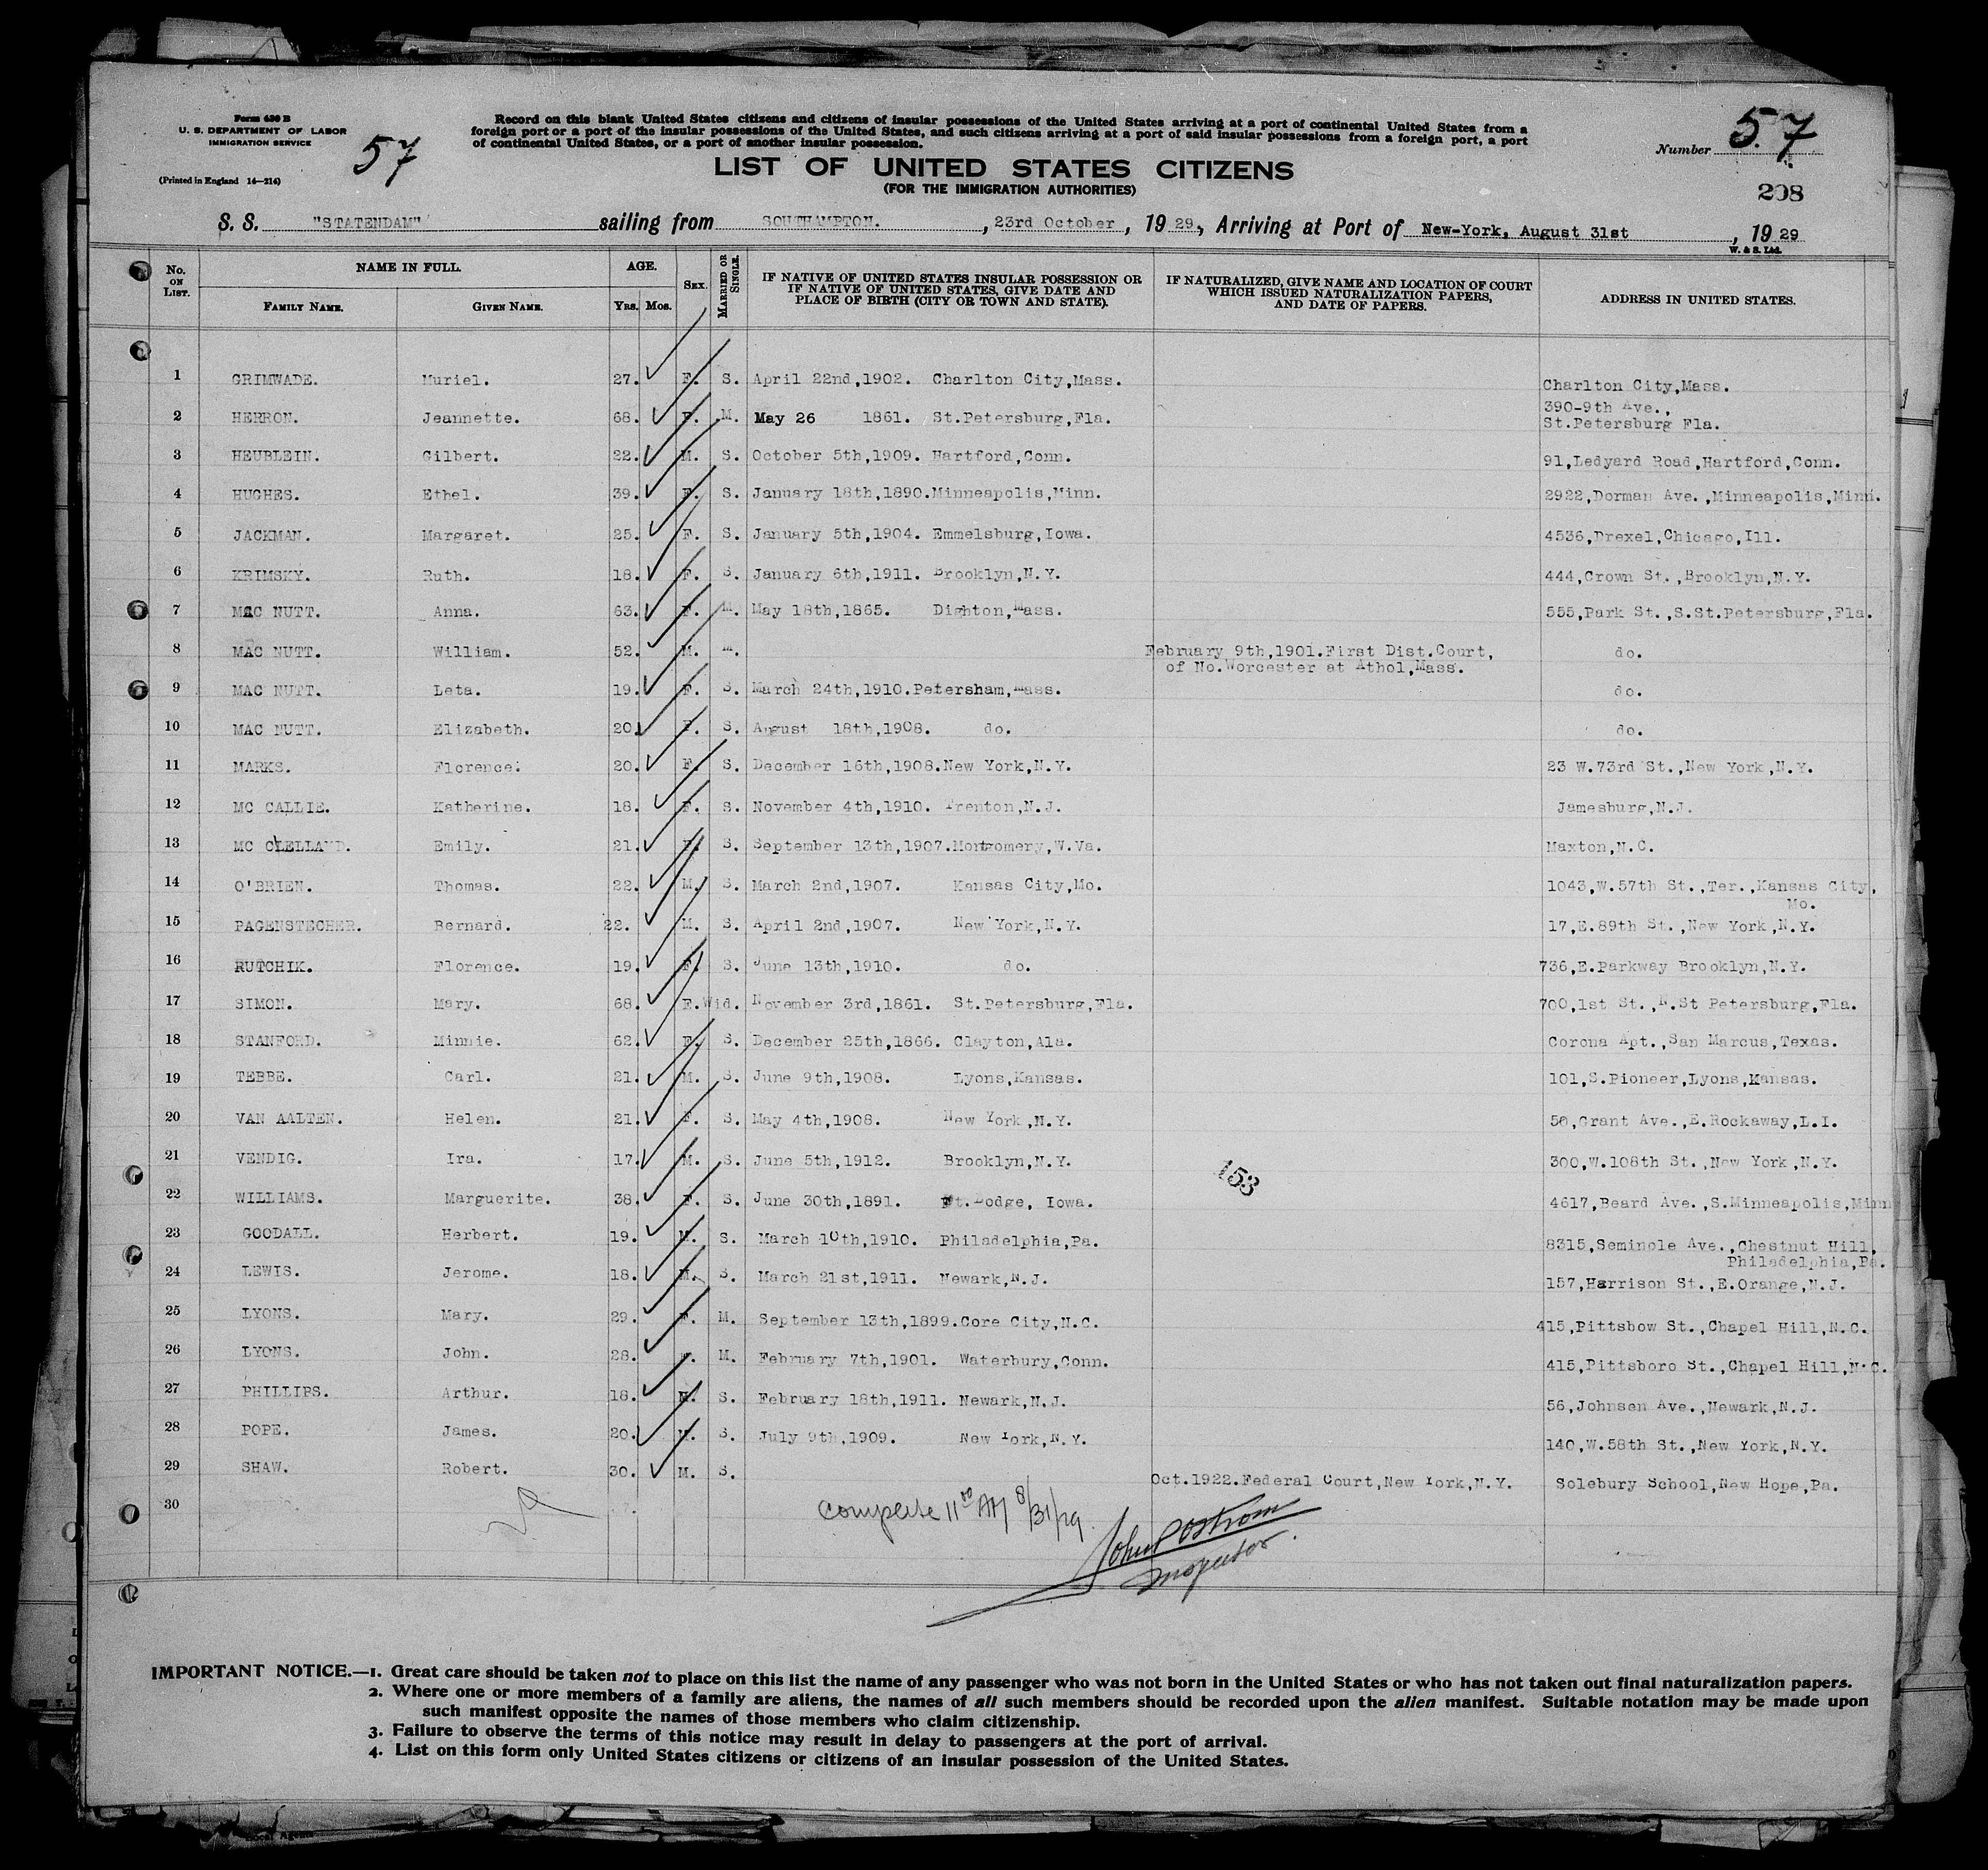 Form 630 B
U. S. DEPARTMENT OF LABOR
IMMIGRATION SERVICE
57
(Printed in England 14—214)
Record on this blank United States citizens and citizens of insular possessions of the United States arriving at a port of continental United States from a
foreign port or a port of the insular possessions of the United States, and such citizens arriving at a port of said insular possessions from a foreign port, a port
of continental United States, or a port of another insular possession.
LIST OF UNITED STATES CITIZENS
(FOR THE IMMIGRATION AUTHORITIES)
Number 57
208
S. S. "STATENDAM" sailing from SOUTHAMPTON. , 23rd October , 19 29., Arriving at Port of New-York, August 31st , 19 29
W. & S. Ltd.
No. ON LIST. NAME IN FULL. FAMILY NAME. GIVEN NAME. AGE. YRS. MOS. SEX. MARRIED OR SINGLE. IF NATIVE OF UNITED STATES INSULAR POSSESSION OR IF NATIVE OF UNITED STATES, GIVE DATE AND PLACE OF BIRTH (CITY OR TOWN AND STATE). IF NATURALIZED, GIVE NAME AND LOCATION OF COURT WHICH ISSUED NATURALIZATION PAPERS, AND DATE OF PAPERS. ADDRESS IN UNITED STATES.
1 GRIMWADE. Muriel. 27. F. S. April 22nd,1902. Charlton City,Mass. Charlton City,Mass.
2 HERRON. Jeannette. 68. F. M. May 26 1861. St.Petersburg,Fla. 390-9th Ave., St.Petersburg Fla.
3 HEUBLEIN. Gilbert. 22. M. S. October 5th,1909. Hartford,Conn. 91,Ledyard Road,Hartford,Conn.
4 HUGHES. Ethel. 39. F. S. January 18th,1890.Minneapolis,Minn. 2922,Dorman Ave.,Minneapolis,Minn.
5 JACKMAN. Margaret. 25. F. S. January 5th,1904. Emmelsburg,Iowa. 4536,Drexel,Chicago,Ill.
6 KRIMSKY. Ruth. 18. F. S. January 6th,1911. Brooklyn,N.Y. 444,Crown St.,Brooklyn,N.Y.
7 MAC NUTT. Anna. 63. F. M. May 18th,1865. Dighton,Mass. 555,Park St.,S.St.Petersburg,Fla.
8 MAC NUTT. William. 52. M. M. February 9th,1901.First Dist.Court, of No.Worcester at Athol,Mass. do.
9 MAC NUTT. Leta. 19. F. S. March 24th,1910.Petersham,Mass. do.
10 MAC NUTT. Elizabeth. 20. F. S. August 18th,1908. do. do.
11 MARKS. Florence. 20. F. S. December 16th,1908.New York,N.Y. 23 W.73rd St.,New York,N.Y.
12 MC CALLIE. Katherine. 18. F. S. November 4th,1910. Trenton,N.J. Jamesburg,N.J.
13 MC CLELLAND. Emily. 21. F. S. September 13th,1907.Montgomery,W.Va. Maxton,N.C.
14 O'BRIEN. Thomas. 22. M. S. March 2nd,1907. Kansas City,Mo. 1043,W.57th St.,Ter.,Kansas City, Mo.
15 PAGENSTECHER. Bernard. 22. M. S. April 2nd,1907. New York,N.Y. 17,E.89th St.,New York,N.Y.
16 RUTCHIK. Florence. 19. F. S. June 13th,1910. do. 736,E.Parkway Brooklyn,N.Y.
17 SIMON. Mary. 68. F. Wid. November 3rd,1861. St.Petersburg,Fla. 700,1st St.,N.St Petersburg,Fla.
18 STANFORD. Minnie. 62. F. S. December 25th,1866. Clayton,Ala. Corona Apt.,San Marcus,Texas.
19 TEBBE. Carl. 21. M. S. June 9th,1908. Lyons,Kansas. 101,S.Pioneer,Lyons,Kansas.
20 VAN AALTEN. Helen. 21. F. S. May 4th,1908. New York,N.Y. 56,Grant Ave.,E.Rockaway,L.I.
21 VENDIG. Ira. 17. M. S. June 5th,1912. Brooklyn,N.Y. 300,W.108th St.,New York,N.Y.
153
22 WILLIAMS. Marguerite. 38. F. S. June 30th,1891. Ft.Dodge, Iowa. 4617,Beard Ave.,S.Minneapolis,Minn
23 GOODALL. Herbert. 19. M. S. March 10th,1910. Philadelphia,Pa. 8315,Seminole Ave.,Chestnut Hill, Philadelphia,Pa.
24 LEWIS. Jerome. 18. M. S. March 21st,1911. Newark,N.J. 157,Harrison St.,E.Orange,N.J.
25 LYONS. Mary. 29. F. M. September 13th,1899.Core City,N.C. 415,Pittsbow St.,Chapel Hill,N.C.
26 LYONS. John. 28. M. February 7th,1901. Waterbury,Conn. 415,Pittsboro St.,Chapel Hill,N.C.
27 PHILLIPS. Arthur. 18. M. S. February 18th,1911. Newark,N.J. 56,Johnsen Ave.,Newark,N.J.
28 POPE. James. 20. M. S. July 9th,1909. New York,N.Y. 140,W.58th St.,New York,N.Y.
29 SHAW. Robert. 30. M. S. Oct.1922.Federal Court,New York,N.Y. Solebury School,New Hope,Pa.
30
Complete 11 00 AM 8/31/29.
John P Ostrom
Inspector.
IMPORTANT NOTICE.—1. Great care should be taken not to place on this list the name of any passenger who was not born in the United States or who has not taken out final naturalization papers.
2. Where one or more members of a family are aliens, the names of all such members should be recorded upon the alien manifest. Suitable notation may be made upon
such manifest opposite the names of those members who claim citizenship.
3. Failure to observe the terms of this notice may result in delay to passengers at the port of arrival.
4. List on this form only United States citizens or citizens of an insular possession of the United States.